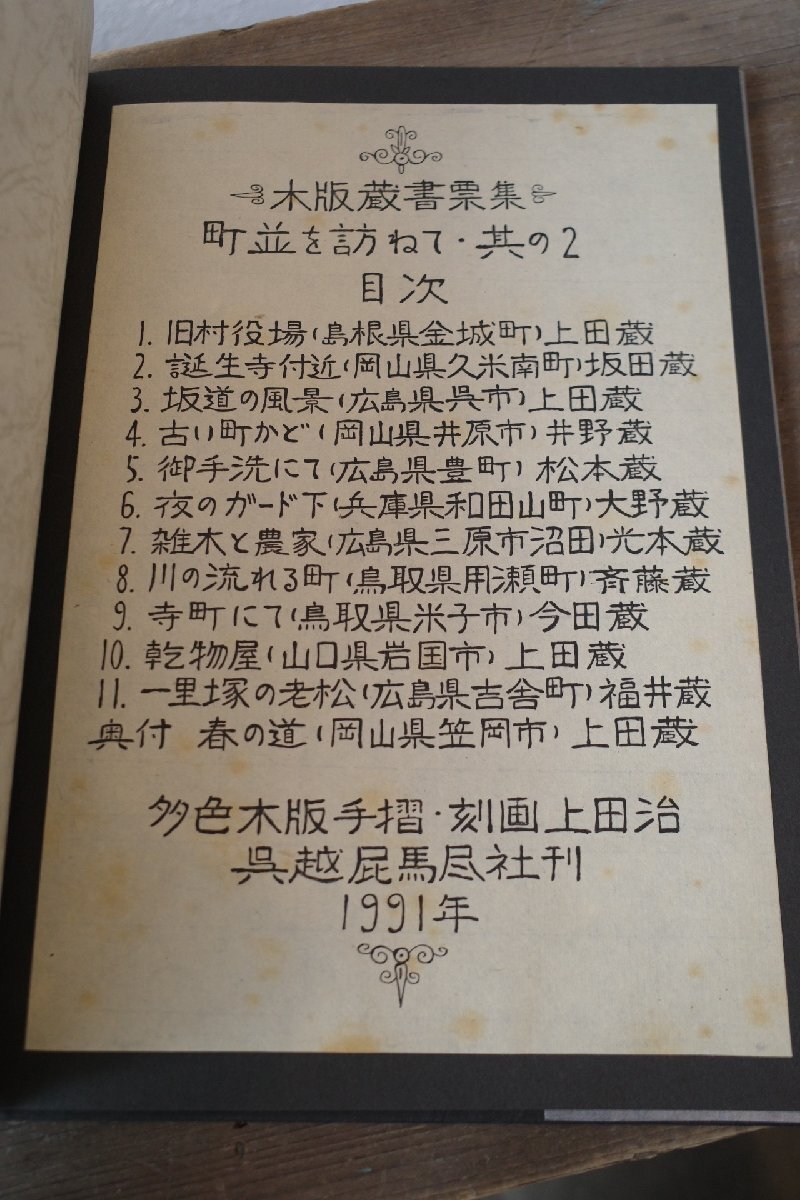 木版蔵書票集
町並を訪ねて・其の2
目次
1. 旧村役場(島根県金城町)上田蔵
2. 誕生寺付近(岡山県久米南町)坂田蔵
3. 坂道の風景(広島県呉市)上田蔵
4. 古い町かど(岡山県井原市)井野蔵
5. 御手洗にて(広島県豊町)松本蔵
6. 夜のガード下(兵庫県和田山町)大野蔵
7. 雑木と農家(広島県三原市沼田)光本蔵
8. 川の流れる町(鳥取県用瀬町)斉藤蔵
9. 寺町にて(鳥取県米子市)今田蔵
10. 乾物屋(山口県岩国市)上田蔵
11. 一里塚の老松(広島県吉舎町)福井蔵
奥付 春の道(岡山県笠岡市)上田蔵
多色木版手摺・刻画上田治
呉越屁馬尽社刊
1991年